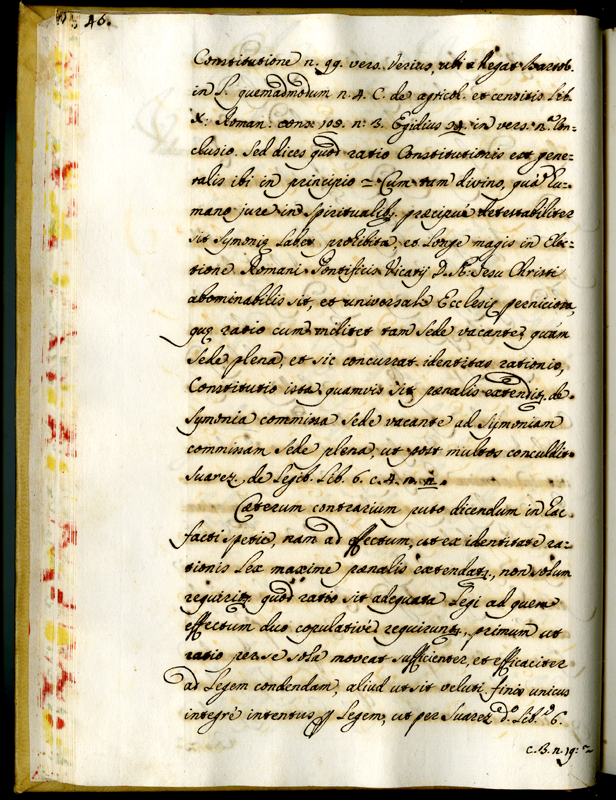 46.
Constitutione n. 99. vers. Verius, ubi allegat Bartol.
in L. quemadmodum n. 4. C. de agricol. et censitis Lib.
X: Roman: cons: 108. n: 3. Egidius 94. in vers: n.ª Con-
clusio. Sed dices quod ratio Constitutionis est gene-
ralis ibi in principio = Cum tam divino, quā hu-
mano jure in Spiritualib. præcipuè detestabiliter
sit Symonię labes prohibita, et longe magis in Elec-
tione Romani Pontificis Vicarij D. N. Jesu Christi
abominabilis sit, et universale Ecclesię perniciosa,
quę ratio cum militet tam Sede vacante, quam
Sede plena, et sic concurrat identitas rationis,
Constitutio ista quamvis sit pœnalis extendit. de
Symonia commissa Sede vacante ad Symoniam
commissam Sede plena, ut post multos concludit
Suarez de Legib. Lib. 6. c. 4. n. n.
Cæterum contrarium puto dicendum in hac
facti spetie, nam ad effectum, ut ex identitate ra-
tionis Lex maxime pœnalis extendat., non solum
requirit. quod ratio sit adequata Legi ad quem
effectum duo copulative requirunt., primum ut
ratio per se sola moveat sufficienter, et efficaciter
ad Legem condendam, aliud ut sit veluti finis unicus
integrè intentus p Legem, ut per Suarez d.º Lib.º 6.
c. 3. n. 19: